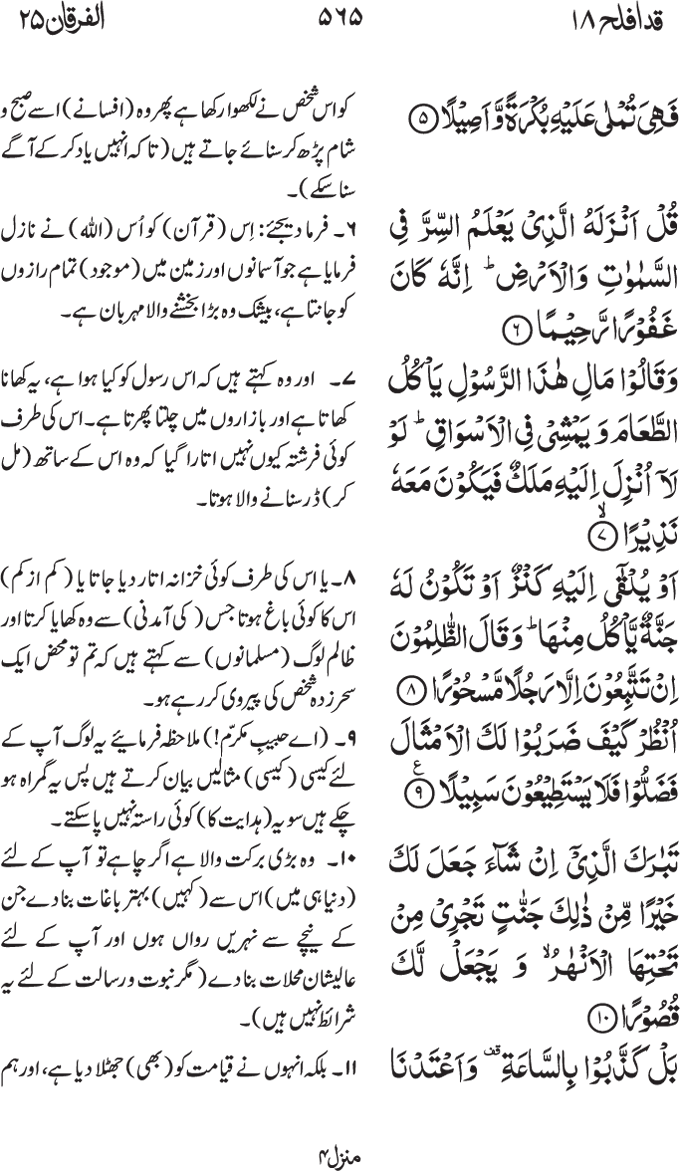 قد افلح ۱۸
۵۶۵
الفرقان ۲۵
فَهِیَ تُمْلٰی عَلَیْهِ بُکْرَةً وَّ اَصِیْلًا ۝۵
قُلْ اَنْزَلَهُ الَّذِیْ یَعْلَمُ السِّرَّ فِی
السَّمٰوٰتِ وَالْاَرْضِ ؕ اِنَّهٗ کَانَ
غَفُوْرًا رَّحِیْمًا ۝۶
وَقَالُوْا مَالِ هٰذَا الرَّسُوْلِ یَاْکُلُ
الطَّعَامَ وَ یَمْشِیْ فِی الْاَسْوَاقِ ؕ لَوْ
لَاۤ اُنْزِلَ اِلَیْهِ مَلَکٌ فَیَکُوْنَ مَعَهٗ
نَذِیْرًا ۙ۝۷
اَوْ یُلْقٰۤی اِلَیْهِ کَنْزٌ اَوْ تَکُوْنُ لَهٗ
جَنَّةٌ یَّاْکُلُ مِنْهَا ؕ وَ قَالَ الظّٰلِمُوْنَ
اِنْ تَتَّبِعُوْنَ اِلَّا رَجُلًا مَّسْحُوْرًا ۝۸
اُنْظُرْ کَیْفَ ضَرَبُوْا لَکَ الْاَمْثَالَ
فَضَلُّوْا فَلَا یَسْتَطِیْعُوْنَ سَبِیْلًا ۝۹ ع
تَبٰرَکَ الَّذِیْۤ اِنْ شَآءَ جَعَلَ لَکَ
خَیْرًا مِّنْ ذٰلِکَ جَنّٰتٍ تَجْرِیْ مِنْ
تَحْتِهَا الْاَنْهٰرُ ۙ وَ یَجْعَلْ لَّکَ
قُصُوْرًا ۝۱۰
بَلْ کَذَّبُوْا بِالسَّاعَةِ ۟ وَاَعْتَدْنَا
کو اس شخص نے لکھوا رکھا ہے پھر وہ (افسانے) اسے صبح و
شام پڑھ کر سنائے جاتے ہیں (تاکہ انہیں یاد کر کے آگے
سنا سکے)۔
۶۔ فرما دیجئے: اِس (قرآن) کو اُس (اللہ) نے نازل
فرمایا ہے جو آسمانوں اور زمین میں (موجود) تمام رازوں
کو جانتا ہے، بیشک وہ بڑا بخشنے والا مہربان ہے۔
۷۔ اور وہ کہتے ہیں کہ اس رسول کو کیا ہوا ہے، یہ کھانا
کھاتا ہے اور بازاروں میں چلتا پھرتا ہے۔ اس کی طرف
کوئی فرشتہ کیوں نہیں اتارا گیا کہ وہ اس کے ساتھ (مل
کر) ڈر سنانے والا ہوتا۔
۸۔ یا اس کی طرف کوئی خزانہ اتار دیا جاتا یا (کم از کم)
اس کا کوئی باغ ہوتا جس (کی آمدنی) سے وہ کھایا کرتا اور
ظالم لوگ (مسلمانوں) سے کہتے ہیں کہ تم تو محض ایک
سحر زدہ شخص کی پیروی کر رہے ہو۔
۹۔ (اے حبیبِ مکرّم!) ملاحظہ فرمائیے یہ لوگ آپ کے
لئے کیسی (کیسی) مثالیں بیان کرتے ہیں پس یہ گمراہ ہو
چکے ہیں سو یہ (ہدایت کا) کوئی راستہ نہیں پا سکتے۔
۱۰۔ وہ بڑی برکت والا ہے اگر چاہے تو آپ کے لئے
(دنیا ہی میں) اس سے (کہیں) بہتر باغات بنا دے جن
کے نیچے سے نہریں رواں ہوں اور آپ کے لئے
عالیشان محلات بنا دے (مگر نبوت و رسالت کے لئے یہ
شرائط نہیں ہیں)۔
۱۱۔ بلکہ انہوں نے قیامت کو (بھی) جھٹلا دیا ہے، اور ہم
منزل ۴